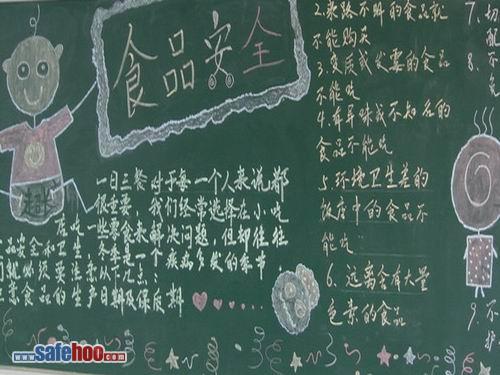 食品安全
一日三餐对于每一个人来说都
很重要,我们经常选择在小吃
店吃一些零食来解决问题,但却往往
品安全和卫生。冬季是一个疾病多发的季节
们就必须要注意以下几点:
意食品的生产日期及保质期
2.来路不明的食品就
不能购买
3.变质或发霉的食品
不能吃
4.有异味或不知名的
食品不能吃
5.环境卫生差的
饭店中的食品不
能吃
6.远离含有大量
色素的食品
7.切
8.不
9.不
www.safehoo.com